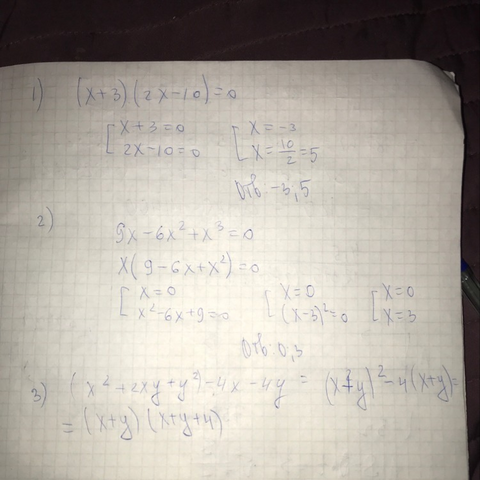 1) (x+3)(2x-10)=0
[x+3=0 [x=-3
2x-10=0 x=10/2=5
Отв -3,5
2)
9x-6x²+x³=0
x(9-6x+x²)=0
[x=0 [x=0 [x=0
x²-6x+9=0 (x-3)²=0 x=3
Отв 0,3
3) (x²+2xy+y²)-4x-4y = (x+y)²-4(x+y)=
=(x+y)(x+y+4)